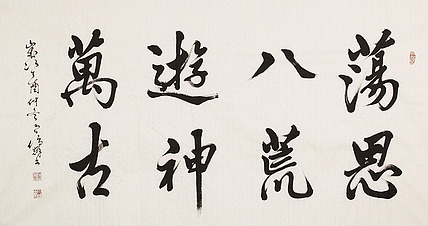 蕩思
八荒
遊神
萬古